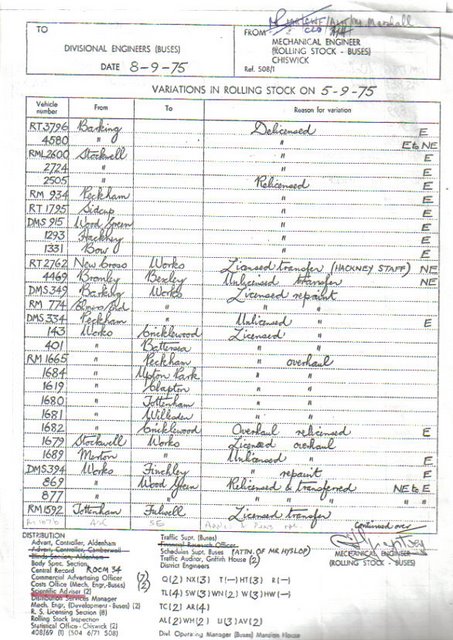 TO
DIVISIONAL ENGINEERS (BUSES)
DATE 8-9-75
FROM
MECHANICAL ENGINEER
(ROLLING STOCK - BUSES)
CHISWICK
Ref. 508/1
VARIATIONS IN ROLLING STOCK ON 5-9-75
Vehicle number From To Reason for variation
RT3796 Barking Delicensed E
4580 " " E to NE
RML2600 Stockwell " E
2724 " " E
2505 " Relicensed E
RM 934 Peckham " E
RT 1795 Sidcup " E
DMS 915 Wood Green " E
1293 Hackney " E
1331 Bow " E
RT2762 New Cross Works Licensed transfer (HACKNEY STAFF) NE
4469 Bromley Bexley Unlicensed transfer NE
DMS349 Barking Works Licensed repaint
RM 774 " " "
DMS334 Peckham " Unlicensed " E
143 Works Cricklewood Licensed "
401 " Battersea " "
RM1665 " Peckham " overhaul
1684 " Upton Park " "
1619 " Clapton " "
1680 " Tottenham " "
1681 " Willesden " "
1682 " Cricklewood Overhaul relicensed E
1679 Stockwell Works Licensed overhaul
1689 Merton " Unlicensed " E
DMS394 Works Finchley " repaint E
869 " Wood Green Relicensed & transferred NE to E
877 " " " " "
RM1592 Tottenham Fulwell Licensed transfer
Continued over
MECHANICAL ENGINEER
(ROLLING STOCK - BUSES)
DISTRIBUTION
Advert, Controller, Aldenham
Advert, Controller, Camberwell
Blinds Section, Aldenham
Body Spec. Section
Central Record ROOM 34
Commercial Advertising Officer (7)
Costs Office (Mech. Engr.-Buses) (2)
Scientific Adviser (2)
Distribution Services Manager
Mech. Engr, (Development - Buses) (2)
R. S. Licensing Section (8)
Rolling Stock Inspection
Statistical Office - Chiswick (2)
408/69 (1) (504 6/71 508)
Traffic Supt. (Buses)
Financial Research Officer
Schedules Supt. Buses (ATTN. OF MR HYSLOP)
Traffic Auditor, Griffith House (2)
District Engineers
Q(2) NX(3) T(-) HT(3) R(-)
TL(4) SW(3) WN(2) W(3) HW(-)
TC(2) AR(4)
AL(2) WH(2) U(3) AV(2)
Divl. Operating Manager (Buses) Mansion House